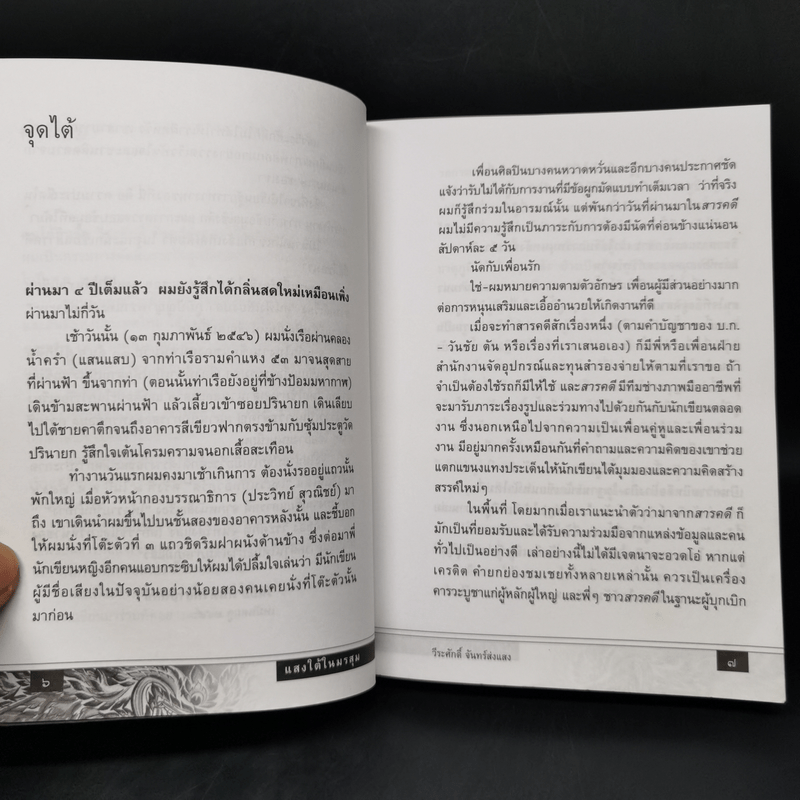 จุดไต้
ผ่านมา ๔ ปีเต็มแล้ว ผมยังรู้สึกได้กลิ่นสดใหม่เหมือนเพิ่ง
ผ่านมาไม่กี่วัน
เช้าวันนั้น (๑๓ กุมภาพันธ์ ๒๕๔๖) ผมนั่งเรือผ่านคลอง
น้ำครำ (แสนแสบ) จากท่าเรือรามคำแหง ๕๓ มาจนสุดสาย
ที่ผ่านฟ้า ขึ้นจากท่า (ตอนนั้นท่าเรือยังอยู่ที่ข้างป้อมมหากาฬ)
เดินข้ามสะพานผ่านฟ้า แล้วเลี้ยวเข้าซอยปรินายก เดินเลียบ
ไปใต้ชายคาตึกจนถึงอาคารสีเขียวฟากตรงข้ามกับซุ้มประตูวัด
ปรินายก รู้สึกใจเต้นโครมครามจนอกเสื้อสะเทือน
ทำงานวันแรกผมคงมาเช้าเกินการ ต้องนั่งรออยู่แถวนั้น
พักใหญ่ เมื่อหัวหน้ากองบรรณาธิการ (ประวิทย์ สุวณิชย์) มา
ถึง เขาเดินนำผมขึ้นไปบนชั้นสองของอาคารหลังนั้น และชี้บอก
ให้ผมนั่งที่โต๊ะตัวที่ ๓ แถวชิดริมฝาผนังด้านข้าง ซึ่งต่อมาพี่
นักเขียนหญิงอีกคนแอบกระซิบให้ผมได้ปลื้มใจเล่นว่า มีนักเขียน
ผู้มีชื่อเสียงในปัจจุบันอย่างน้อยสองคนเคยนั่งที่โต๊ะตัวนั้น
มาก่อน
๖
แสงใต้ในมรสุม
เพื่อนศิลปินบางคนหวาดหวั่นและอีกบางคนประกาศชัด
แจ้งว่ารับไม่ได้กับการงานที่มีข้อผูกมัดแบบทำเต็มเวลา ว่าที่จริง
ผมก็รู้สึกร่วมในอารมณ์นั้น แต่พันกว่าวันที่ผ่านมาในสารคดี
ผมไม่มีความรู้สึกเป็นภาระกับการต้องมีนัดที่ค่อนข้างแน่นอน
สัปดาห์ละ ๕ วัน
นัดกับเพื่อนรัก
ใช่-ผมหมายความตามตัวอักษร เพื่อนผู้มีส่วนอย่างมาก
ต่อการหนุนเสริมและเอื้ออำนวยให้เกิดงานที่ดี
เมื่อจะทำสารคดีสักเรื่องหนึ่ง (ตามคำบัญชาของ บ.ก.
- วันชัย ตัน หรือเรื่องที่เราเสนอเอง) ก็มีพี่หรือเพื่อนฝ่าย
สำนักงานจัดอุปกรณ์และทุนสำรองจ่ายให้ตามที่เราขอ ถ้า
จำเป็นต้องใช้รถก็มีให้ใช้ และสารคดีมีทีมช่างภาพมืออาชีพที่
จะมารับภาระเรื่องรูปและร่วมทางไปด้วยกันกับนักเขียนตลอด
งาน ซึ่งนอกเหนือไปจากความเป็นเพื่อนคู่หูและเพื่อนร่วม
งาน มีอยู่มากครั้งเหมือนกันที่คำถามและความคิดของเขาช่วย
แตกแขนงแทงประเด็นให้นักเขียนได้มุมมองและความคิดสร้าง
สรรค์ใหม่ๆ
ในพื้นที่ โดยมากเมื่อเราแนะนำตัวว่ามาจากสารคดี ก็
มักเป็นที่ยอมรับและได้รับความร่วมมือจากแหล่งข้อมูลและคน
ทั่วไปเป็นอย่างดี เล่าอย่างนี้ไม่ได้มีเจตนาจะอวดโอ่ หากแต่
เครดิต คำยกย่องชมเชยทั้งหลายเหล่านั้น ควรเป็นเครื่อง
คารวะบูชาแก่ผู้หลักผู้ใหญ่ และพี่ๆ ชาวสารคดีในฐานะผู้บุกเบิก
วีระศักดิ์ จันทร์ส่งแสง
๗